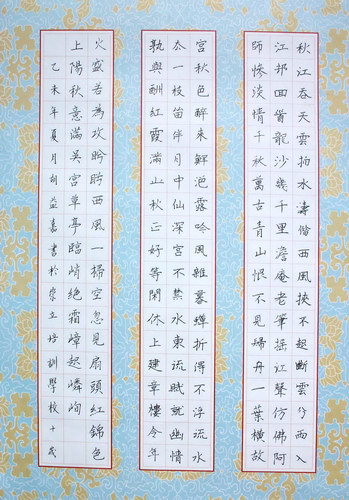 秋江吞天雲拍水濤借西風挾不起斷雲分雨入
江邨回首龍沙幾千里澹庵老筆摇江聲仿佛阿
師慘淡情千秋萬古青山恨不見歸舟一葉橫故
宮秋色醉來鮮浥露吟風雖暮蟬折得不浮流水
厺一枝笛伴月中仙深宮不禁水東流賦就幽情
孰與酬紅霞滿山秋正好等閑休上建章樓今年
火盛苦為攻盻盻西風一掃空忽見扇頭紅錦色
上陽秋意滿吳宮草亭臨崎絕霜嶂起嶙峋
乙未年夏月胡益嘉書於立培訓學校十歲